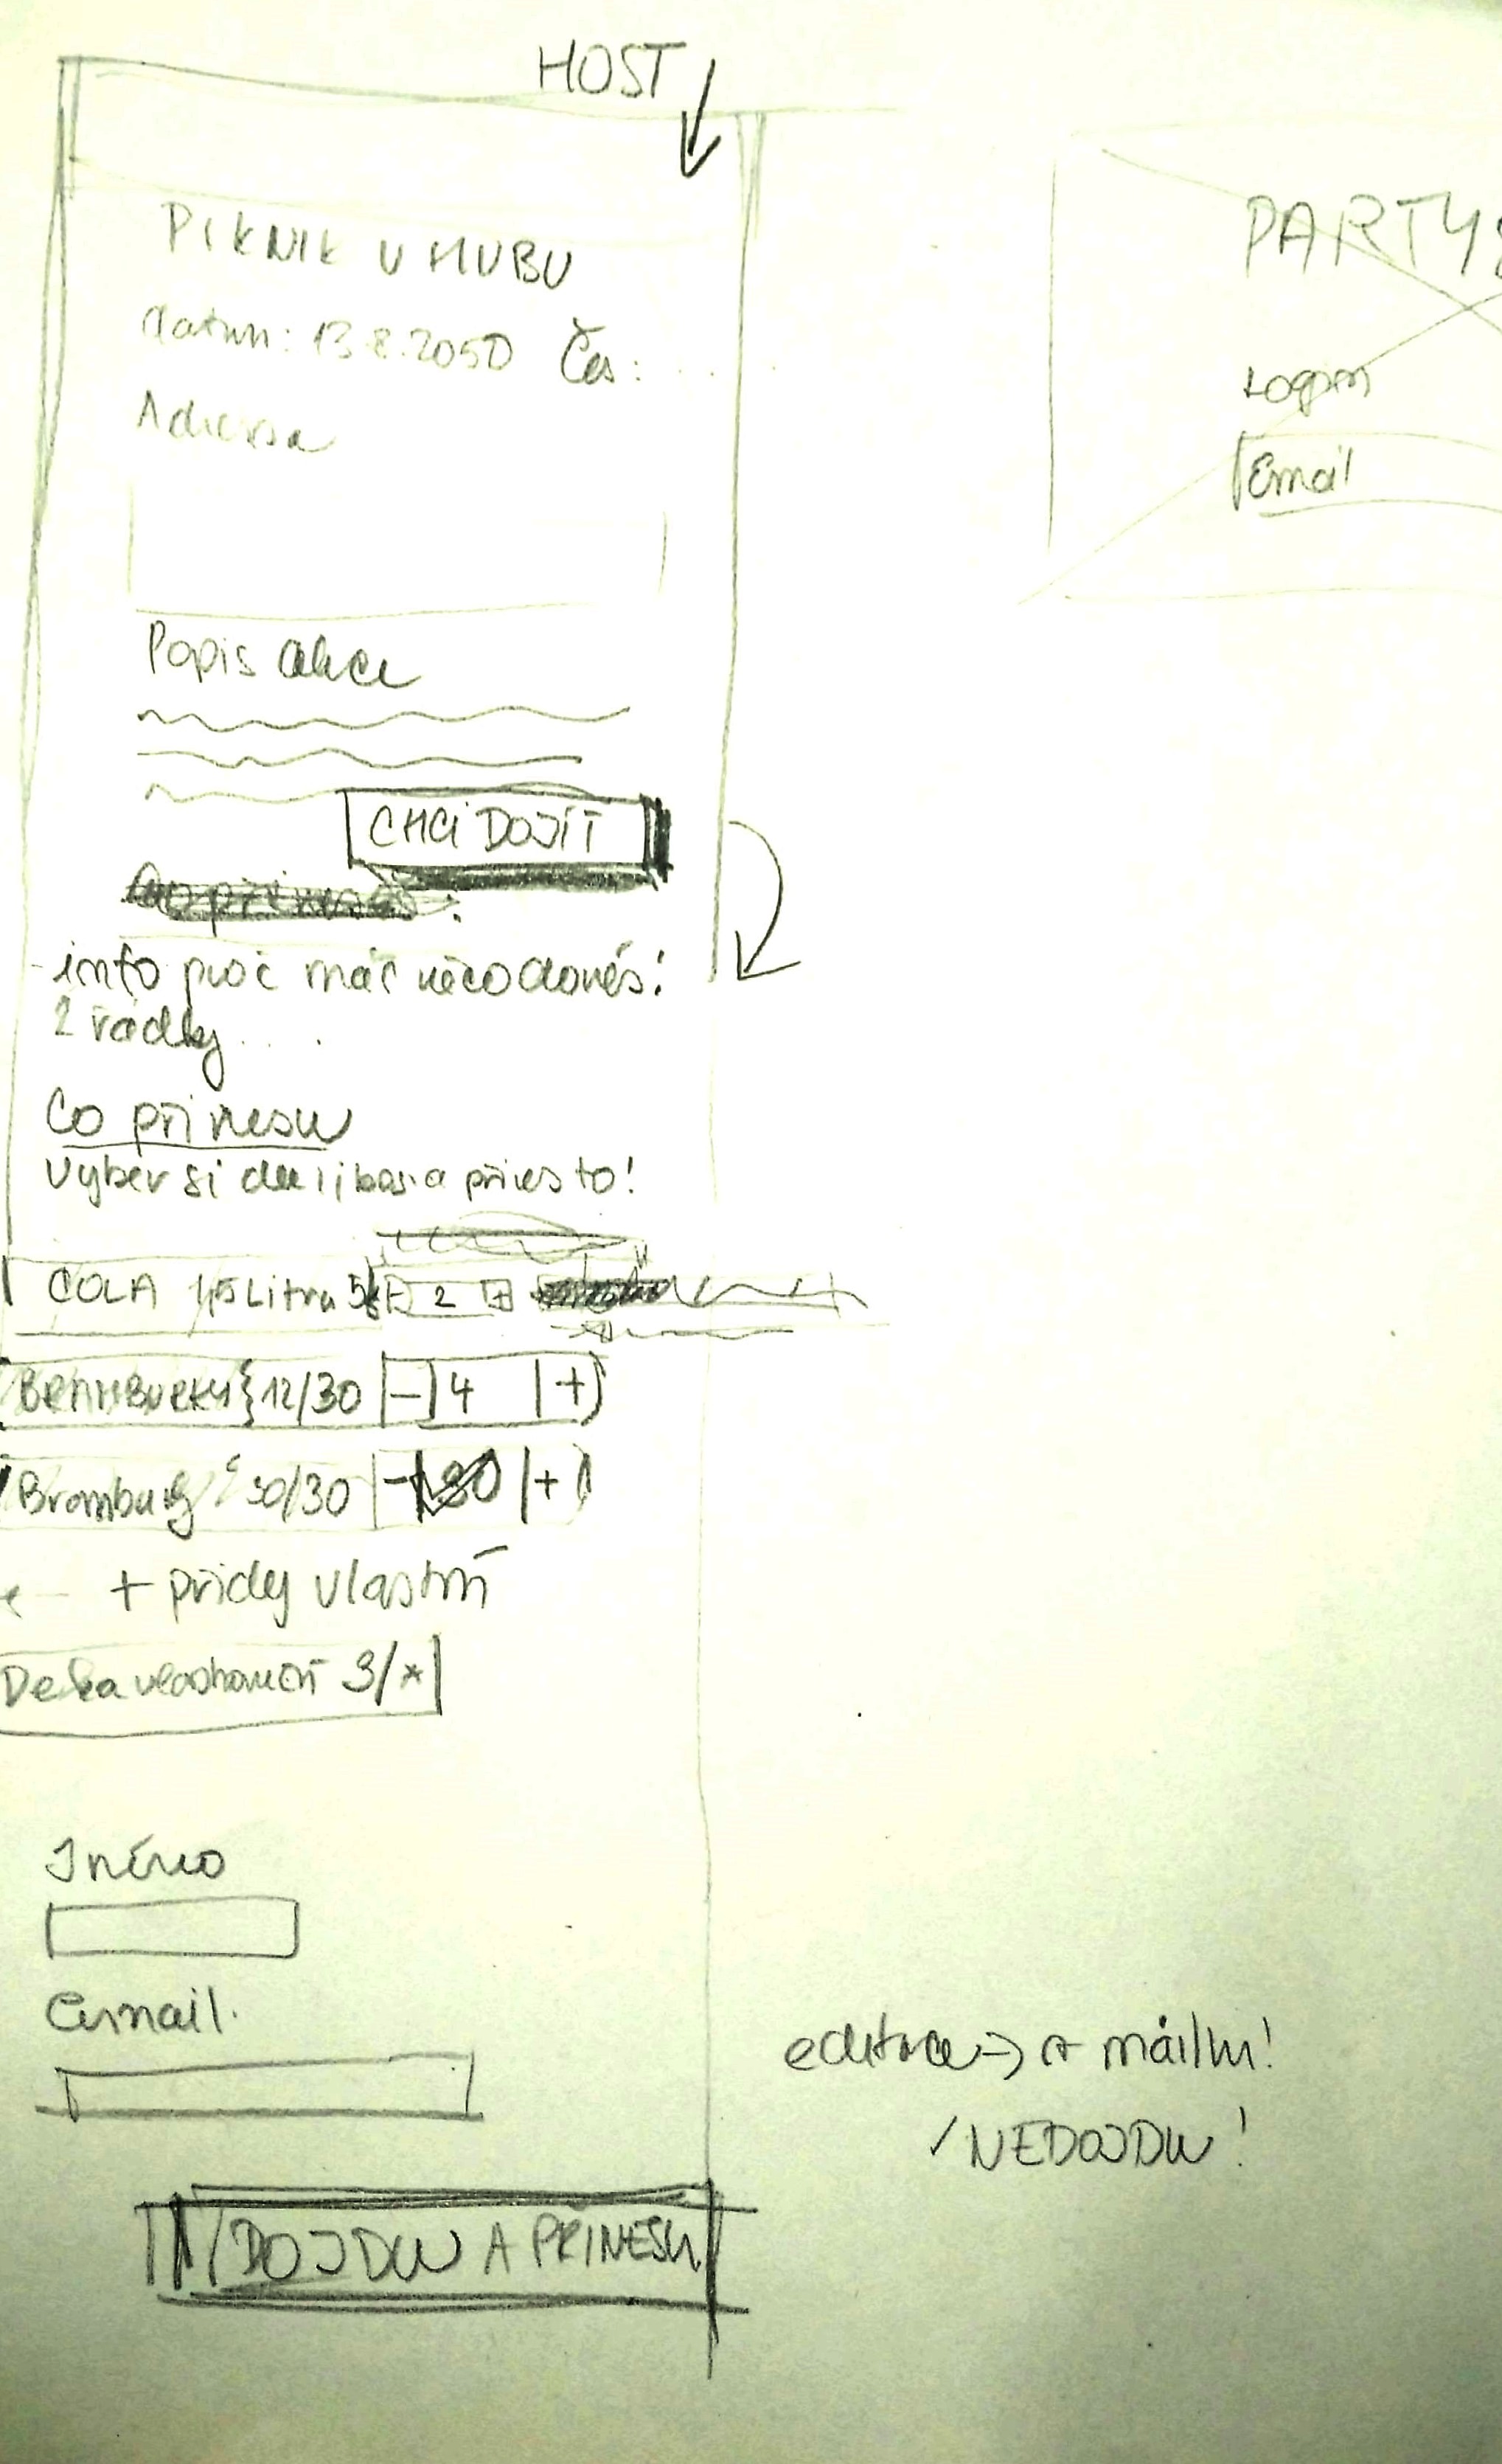 HOST
PIKNIK V HUBU
datum: 13.8.2050 Čas: ....
Adresa
Popis akce
CHCI DOJÍT
- info proč máš něco donés!
2 řádky....
Co přinesu
Vyber si a přines to!
COLA 1,5 Litru 2 +
12/30 - 4 +
Brambury 30/30 - +
+ přidej vlastní
3/*
Jméno
Email.
DOJDU A PŘINESU
PARTY
Login
Email
editace → mailu!
/ NEDOJDU!